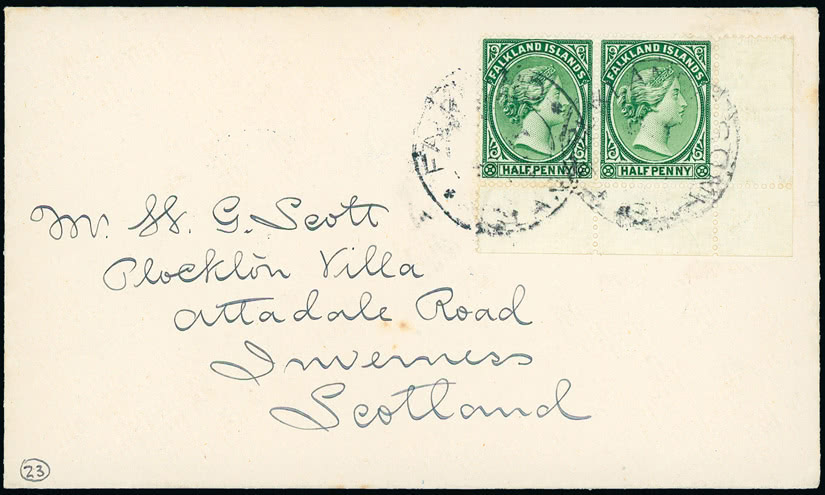 FALKLAND ISLANDS
HALFPENNY
FALKLAND ISLANDS
HALFPENNY
Mr. W. G. Scott
Plockton Villa
Attadale Road
Inverness
Scotland
23